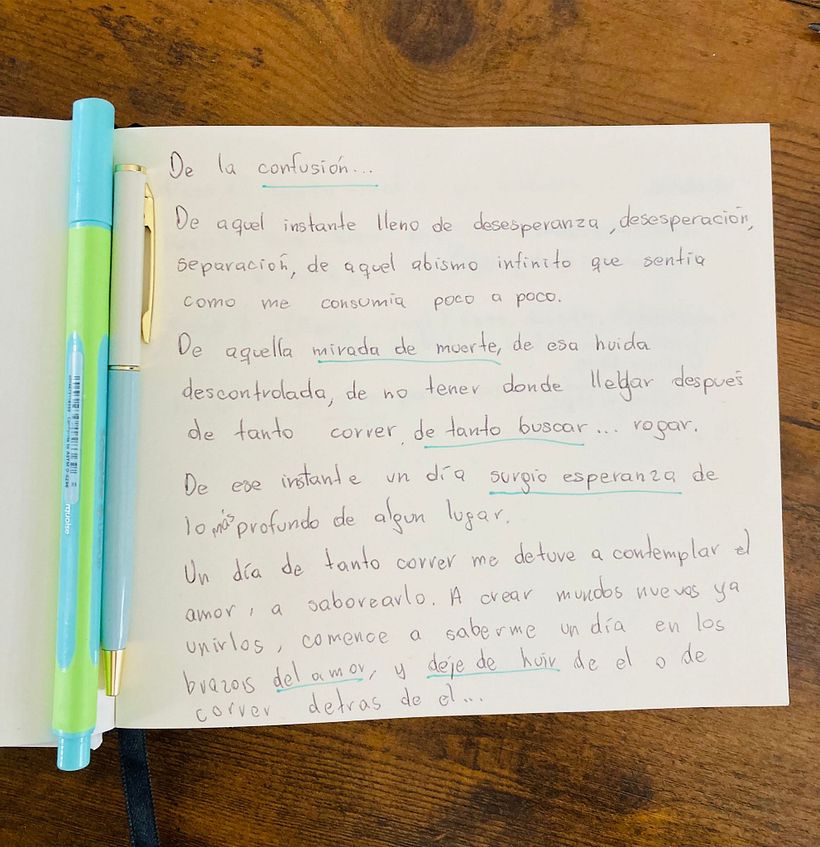 De la confusión...
De aquel instante lleno de desesperanza, desesperación,
separación, de aquel abismo infinito que sentia
como me consumia poco a poco.
De aquella mirada de muerte, de esa huida
descontrolada, de no tener donde llegar despues
de tanto correr, de tanto buscar... rogar.
De ese instante un día surgio esperanza de
lo más profundo de algun lugar.
Un día de tanto correr me detuve a contemplar el
amor, a saborearlo. A crear mundos nuevos ya
unirlos, comence a saberme un día en los
brazos del amor, y deje de huir de el o de
correr detras de el...